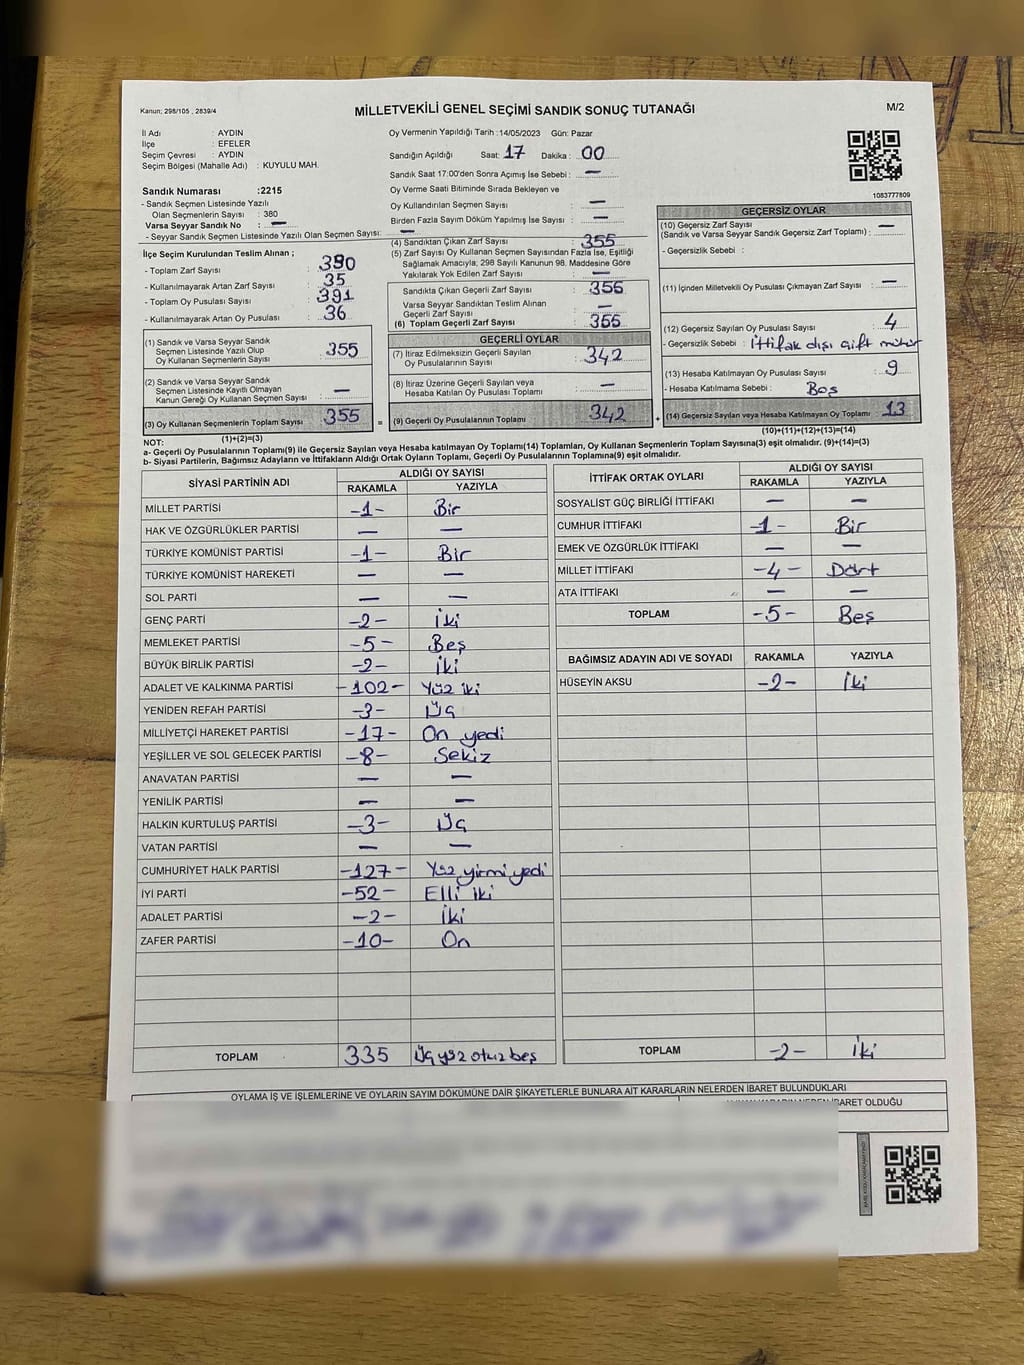 Kanun; 298/105 , 2839/4
MİLLETVEKİLİ GENEL SEÇİMİ SANDIK SONUÇ TUTANAĞI
M/2
İl Adı : AYDIN
İlçe : EFELER
Seçim Çevresi : AYDIN
Seçim Bölgesi (Mahalle Adı) : KUYULU MAH.
Sandık Numarası :2215
- Sandık Seçmen Listesinde Yazılı
Olan Seçmenlerin Sayısı : 380
Varsa Seyyar Sandık No : —
- Seyyar Sandık Seçmen Listesinde Yazılı Olan Seçmen Sayısı: —
İlçe Seçim Kurulundan Teslim Alınan ;
- Toplam Zarf Sayısı : 390
- Kullanılmayarak Artan Zarf Sayısı : 35
- Toplam Oy Pusulası Sayısı : 391
- Kullanılmayarak Artan Oy Pusulası : 36
(1) Sandık ve Varsa Seyyar Sandık
Seçmen Listesinde Yazılı Olup
Oy Kullanan Seçmenlerin Sayısı : 355
(2) Sandık ve Varsa Seyyar Sandık
Seçmen Listesinde Kayıtlı Olmayan
Kanun Gereği Oy Kullanan Seçmen Sayısı : —
(3) Oy Kullanan Seçmenlerin Toplam Sayısı : 355
(1)+(2)=(3)
Oy Vermenin Yapıldığı Tarih :14/05/2023 Gün: Pazar
Sandığın Açıldığı Saat: 17 Dakika : 00
Sandık Saat 17:00'den Sonra Açımış İse Sebebi : —
Oy Verme Saati Bitiminde Sırada Bekleyen ve
Oy Kullandırılan Seçmen Sayısı : —
Birden Fazla Sayım Döküm Yapılmış İse Sayısı : —
(4) Sandıktan Çıkan Zarf Sayısı : 355
(5) Zarf Sayısı Oy Kullanan Seçmen Sayısından Fazla İse, Eşitliği
Sağlamak Amacıyla; 298 Sayılı Kanunun 98. Maddesine Göre
Yakılarak Yok Edilen Zarf Sayısı : —
Sandıkta Çıkan Geçerli Zarf Sayısı : 355
Varsa Seyyar Sandıktan Teslim Alınan
Geçerli Zarf Sayısı : —
(6) Toplam Geçerli Zarf Sayısı : 355
=
GEÇERLİ OYLAR
(7) İtiraz Edilmeksizin Geçerli Sayılan
Oy Pusulalarının Sayısı : 342
(8) İtiraz Üzerine Geçerli Sayılan veya
Hesaba Katılan Oy Pusulası Toplamı : —
(9) Geçerli Oy Pusulalarının Toplamı : 342
+
1083777809
GEÇERSİZ OYLAR
(10) Geçersiz Zarf Sayısı : —
(Sandık ve Varsa Seyyar Sandık Geçersiz Zarf Toplamı) :
- Geçersizlik Sebebi :
(11) İçinden Milletvekili Oy Pusulası Çıkmayan Zarf Sayısı : —
(12) Geçersiz Sayılan Oy Pusulası Sayısı : 4
- Geçersizlik Sebebi : İttifak dışı çift mühür
(13) Hesaba Katılmayan Oy Pusulası Sayısı : 9
- Hesaba Katılmama Sebebi : Boş
(14) Geçersiz Sayılan veya Hesaba Katılmayan Oy Toplamı : 13
(10)+(11)+(12)+(13)=(14)
NOT:
a- Geçerli Oy Pusulasının Toplamı(9) ile Geçersiz Sayılan veya Hesaba katılmayan Oy Toplamı(14) Toplamları, Oy Kullanan Seçmenlerin Toplam Sayısına(3) eşit olmalıdır. (9)+(14)=(3)
b- Siyasi Partilerin, Bağımsız Adayların ve İttifakların Aldığı Ortak Oyların Toplamı, Geçerli Oy Pusulalarının Toplamına(9) eşit olmalıdır.
SİYASİ PARTİNİN ADI ALDIĞI OY SAYISI
RAKAMLA YAZIYLA
MİLLET PARTİSİ -1- Bir
HAK VE ÖZGÜRLÜKLER PARTİSİ — —
TÜRKİYE KOMÜNİST PARTİSİ -1- Bir
TÜRKİYE KOMÜNİST HAREKETİ — —
SOL PARTİ — —
GENÇ PARTİ -2- İki
MEMLEKET PARTİSİ -5- Beş
BÜYÜK BİRLİK PARTİSİ -2- İki
ADALET VE KALKINMA PARTİSİ -102- Yüz iki
YENİDEN REFAH PARTİSİ -3- Üç
MİLLİYETÇİ HAREKET PARTİSİ -17- On yedi
YEŞİLLER VE SOL GELECEK PARTİSİ -8- Sekiz
ANAVATAN PARTİSİ — —
YENİLİK PARTİSİ — —
HALKIN KURTULUŞ PARTİSİ -3- Üç
VATAN PARTİSİ — —
CUMHURİYET HALK PARTİSİ -127- Yüz yirmi yedi
İYİ PARTİ -52- Elli iki
ADALET PARTİSİ -2- İki
ZAFER PARTİSİ -10- On
TOPLAM 335 Üç yüz otuz beş
İTTİFAK ORTAK OYLARI ALDIĞI OY SAYISI
RAKAMLA YAZIYLA
SOSYALİST GÜÇ BİRLİĞİ İTTİFAKI — —
CUMHUR İTTİFAKI -1- Bir
EMEK VE ÖZGÜRLÜK İTTİFAKI — —
MİLLET İTTİFAKI -4- Dört
ATA İTTİFAKI — —
TOPLAM -5- Beş
BAĞIMSIZ ADAYIN ADI VE SOYADI RAKAMLA YAZIYLA
HÜSEYİN AKSU -2- İki
TOPLAM -2- İki
OYLAMA İŞ VE İŞLEMLERİNE VE OYLARIN SAYIM DÖKÜMÜNE DAİR ŞİKAYETLERLE BUNLARA AİT KARARLARIN NELERDEN İBARET BULUNDUKLARI
İBARET OLDUĞU